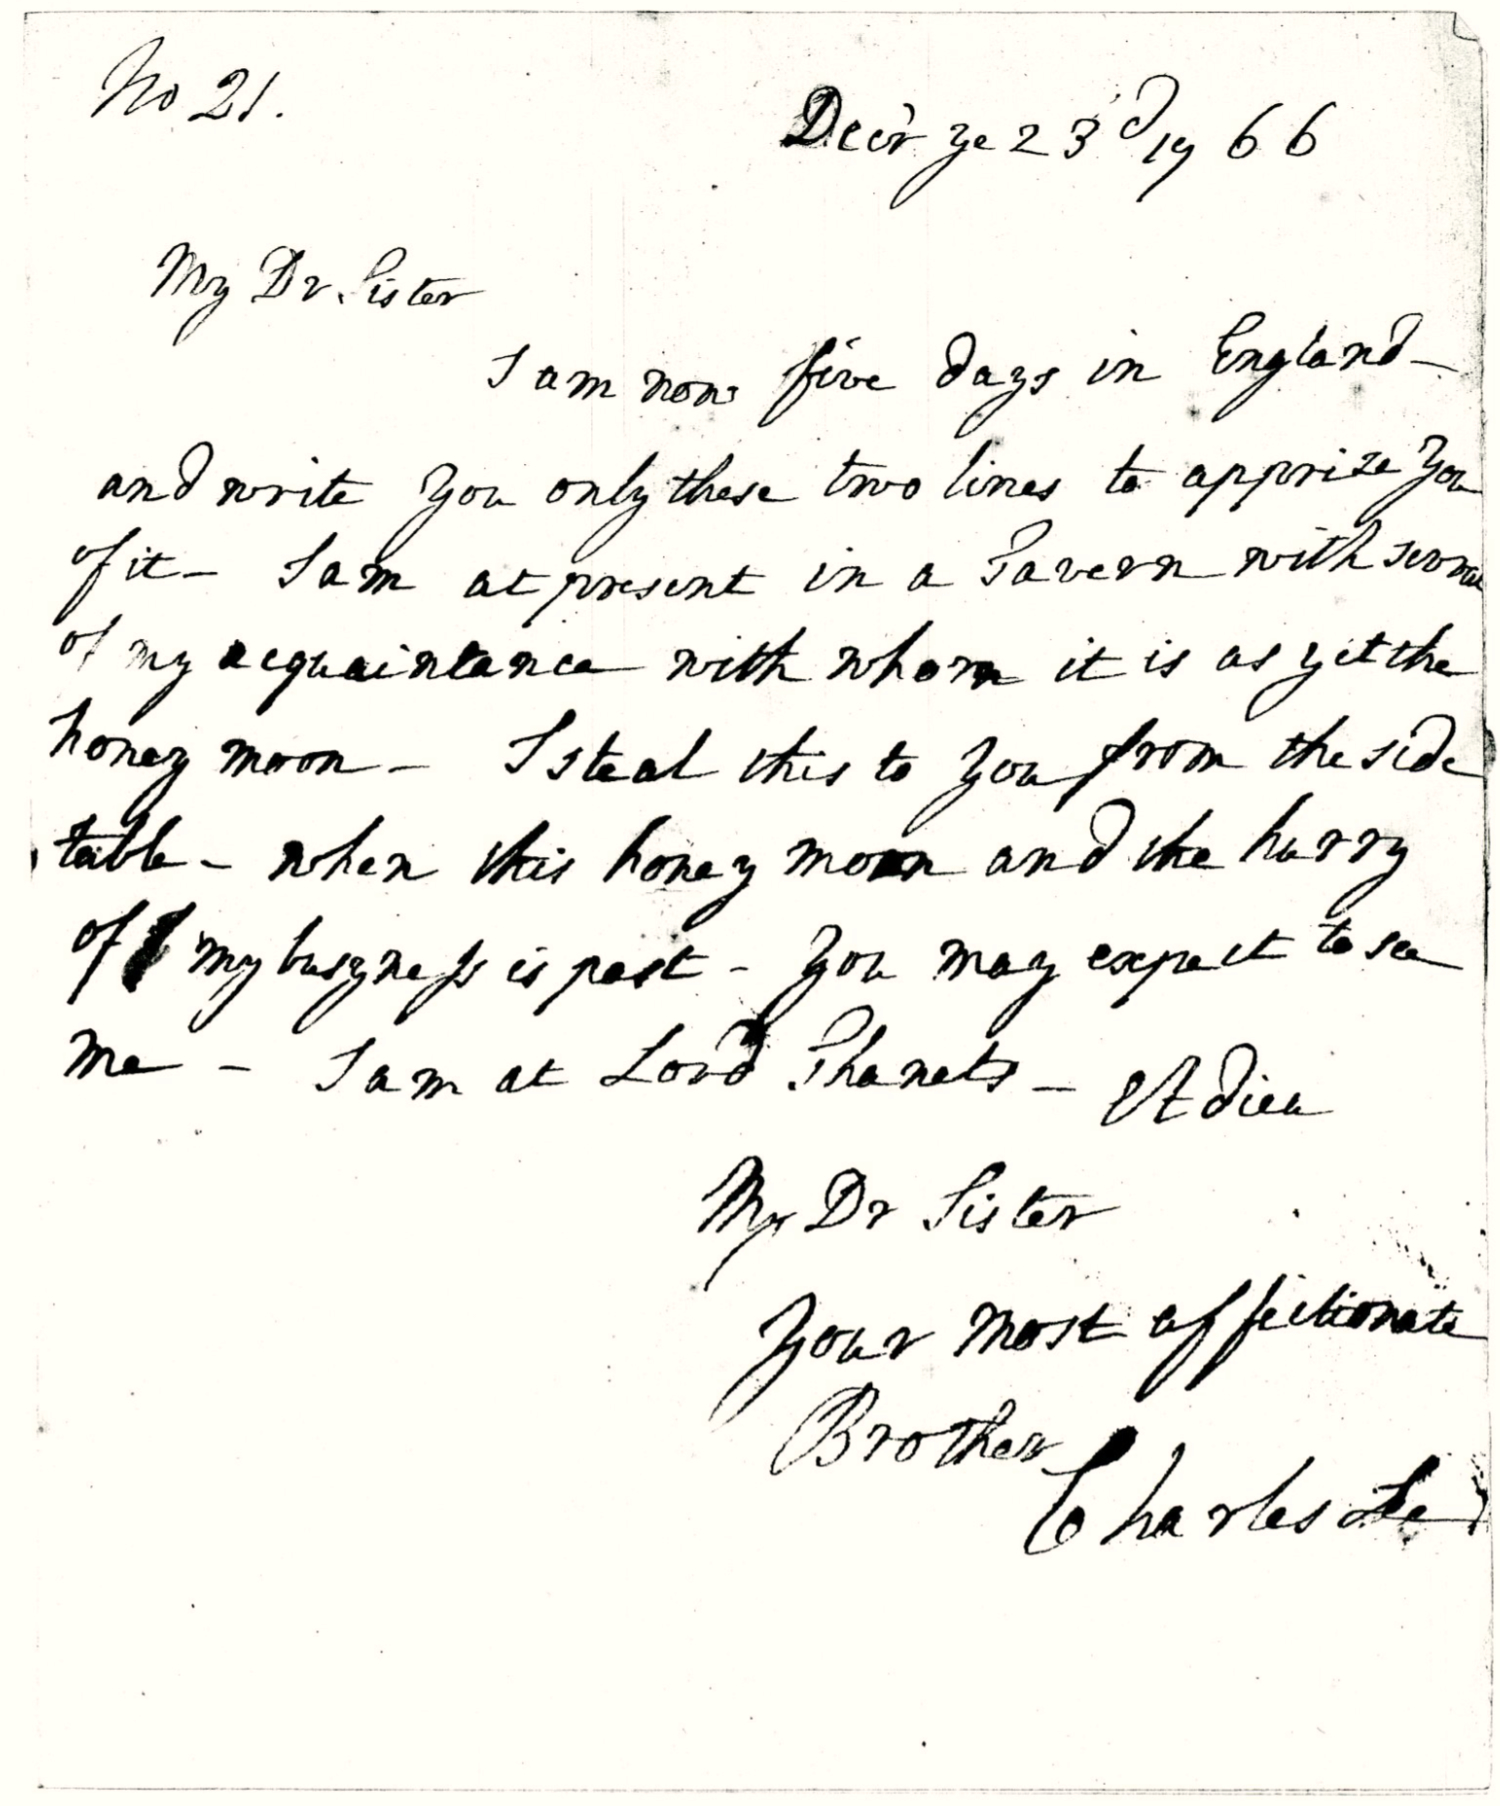 No 21.
Decr ye 23d 1766
My Dr Sister
I am now five days in England -
and write You only these two lines to apprize You
of it - I am at present in a Tavern with several
of my acquaintance with whom it is as yet the
honey moon - I steal this to You from the side
table - when this honey moon and the hurry
of my busyness is past - You may expect to see
me - I am at Lord Thanets - Adieu
My Dr Sister
Your most affectionate
Brother
Charles Lee